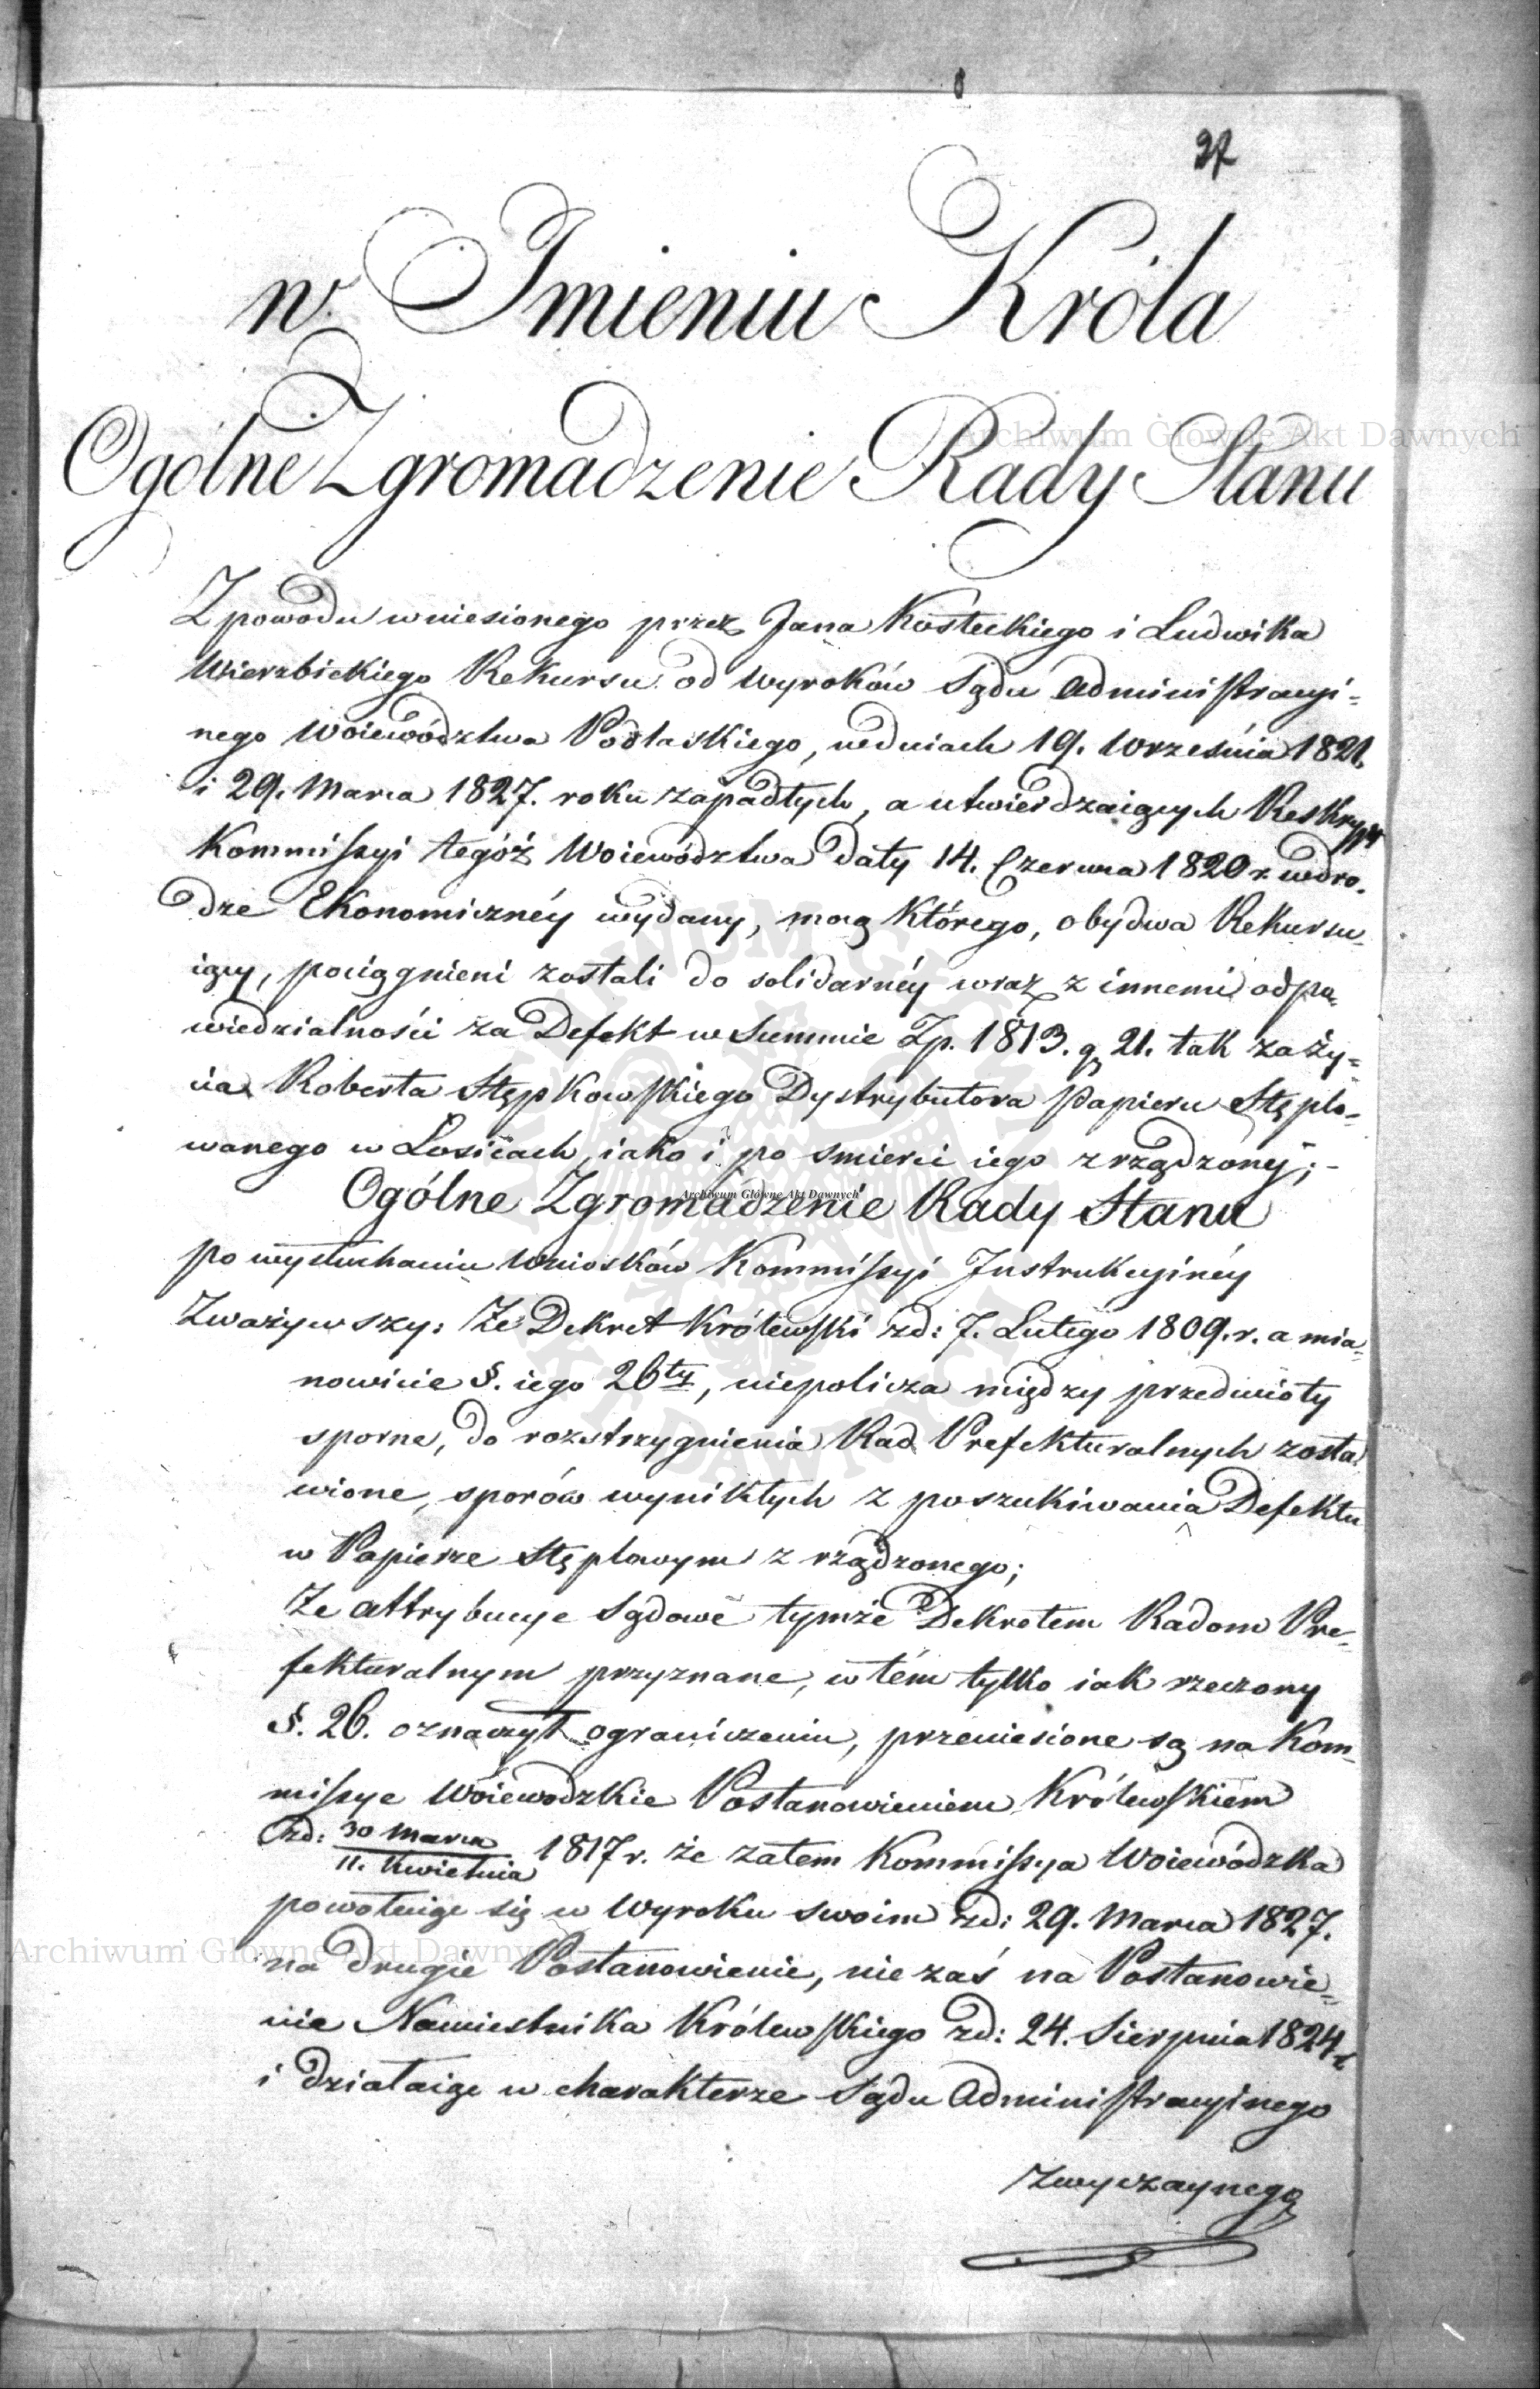 37
w Imieniu Króla
Ogólne Zgromadzenie Rady Stanu
Z powodu wniesionego przez Jana Kosteckiego i Ludwika
Wierzbickiego Rekursu od Wyroków Sądu Administracyi-
nego Woiewództwa Podlaskiego, w dniach 19. Września 1821.
i 29. Marca 1827. roku zapadłych, a utwierdzaiących Reskrypt
Kommissyi tegoż Woiewództwa daty 14. Czerwca 1820 r. w dro-
dze Ekonomicznéy wydany, mocą którego, obydwa Rekursu-
iący, pociągnieni zostali do solidarnéy wraz z innemi odpo-
wiedzialności za Defekt w Summie Zp. 1813. g 21. tak za ży-
cia Roberta Stępkowskiego Dystrybutora Papieru Stęplo-
wanego w Łosicach, iako i po smierci iego zrządzony; -
Ogólne Zgromadzenie Rady Stanu
po wysłuchaniu Wniosków Kommissyi Instrukcyinéy
Zważywszy: Że Dekret Królewski zd: 7. Lutego 1809. r. a mia-
nowicie §. iego 26ty, niepolicza między przedmioty
sporne, do rozstrzygnienia Rad Prefekturalnych zosta-
wione, sporów wynikłych z poszukiwania Defektu
w Papierze Stęplowym zrządzonego;
Że attrybucye Sądowe tymże Dekretem Radom Pre-
fekturalnym przyznane, w tém tylko iak rzeczony
§. 26. oznaczył ograniczeniu, przeniesione są na Kom-
missye Woiewodzkie Postanowieniem Królewskiem
zd: 30 Marca / 11. Kwietnia 1817 r. że zatem Kommissya Woiewódzka
powołuiąc się w Wyroku swoim zd: 29. Marca 1827.
na drugie Postanowienie, nie zaś na Postanowie-
nie Namiestnika Królewskiego zd: 24. Sierpnia 1824 r
i działaiąc w charakterze Sądu Administracyinego
Zwyczaynego
Archiwum Główne Akt Dawnych
Archiwum Główne Akt Dawnych
Archiwum Główne Akt Dawnych